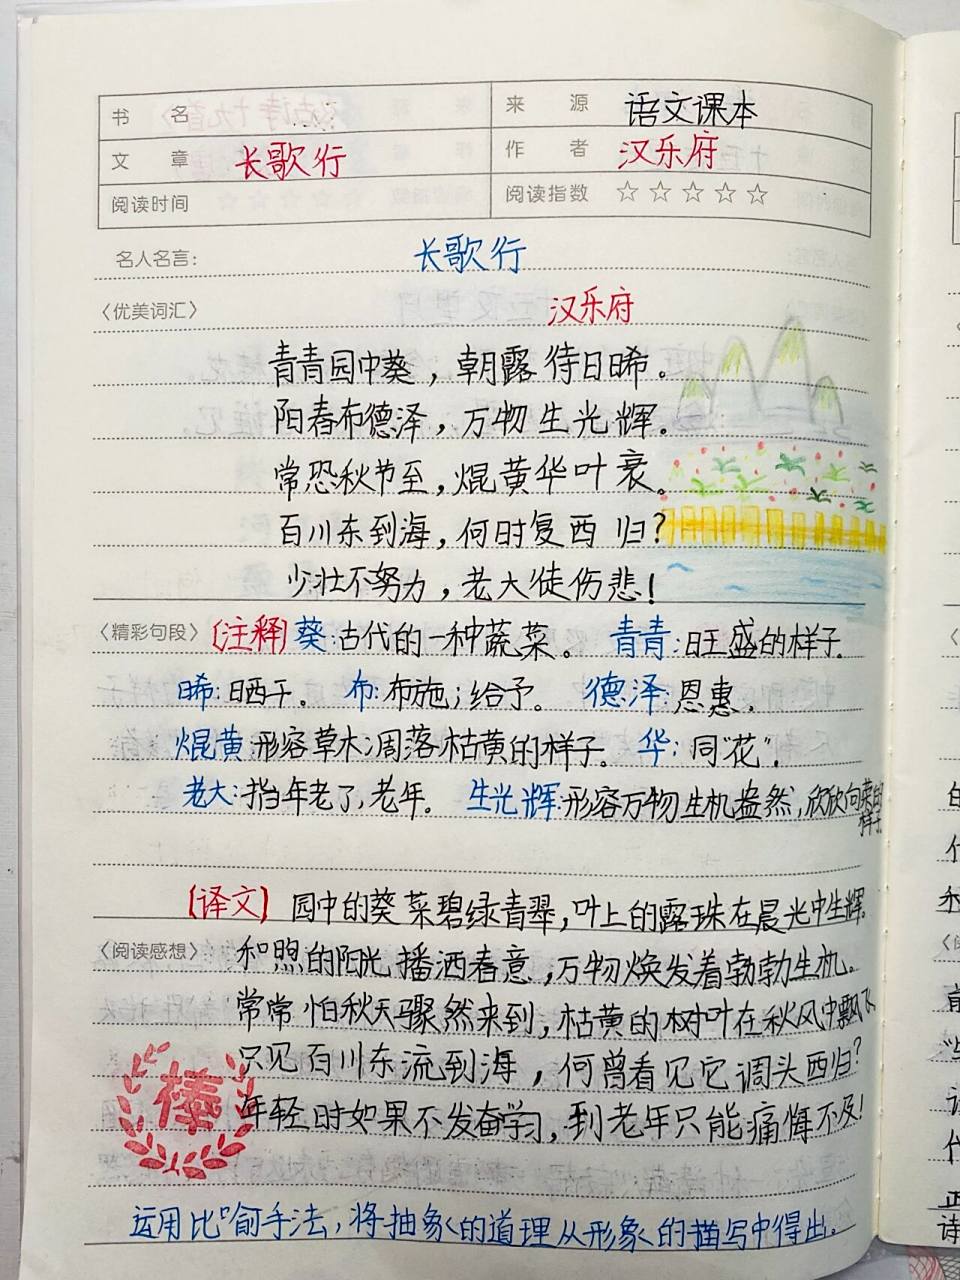 书 名 来 源 语文课本
文 章 长歌行 作 者 汉乐府
阅读时间 阅读指数 ☆☆☆☆☆
名人名言: 长歌行
〈优美词汇〉 汉乐府
青青园中葵，朝露待日晞。
阳春布德泽，万物生光辉。
常恐秋节至，焜黄华叶衰。
百川东到海，何时复西归?
少壮不努力，老大徒伤悲!
〈精彩句段〉[注释]葵:古代的一种蔬菜。 青青:旺盛的样子.
晞:晒干。 布:布施;给予。 德泽:恩惠.
焜黄:形容草木凋落枯黄的样子。 华:同“花”.
老大:指年老了,老年。 生光辉:形容万物生机盎然,欣欣向荣的
样子.
[译文] 园中的葵菜碧绿青翠,叶上的露珠在晨光中生辉.
〈阅读感想〉 和煦的阳光播洒春意,万物焕发着勃勃生机。
常常怕秋天骤然来到,枯黄的树叶在秋风中飘飞
只见百川东流到海，何曾看见它调头西归?
棒 年轻时如果不发奋学习,到老年只能痛悔不及!
运用比喻手法,将抽象的道理从形象的描写中得出.